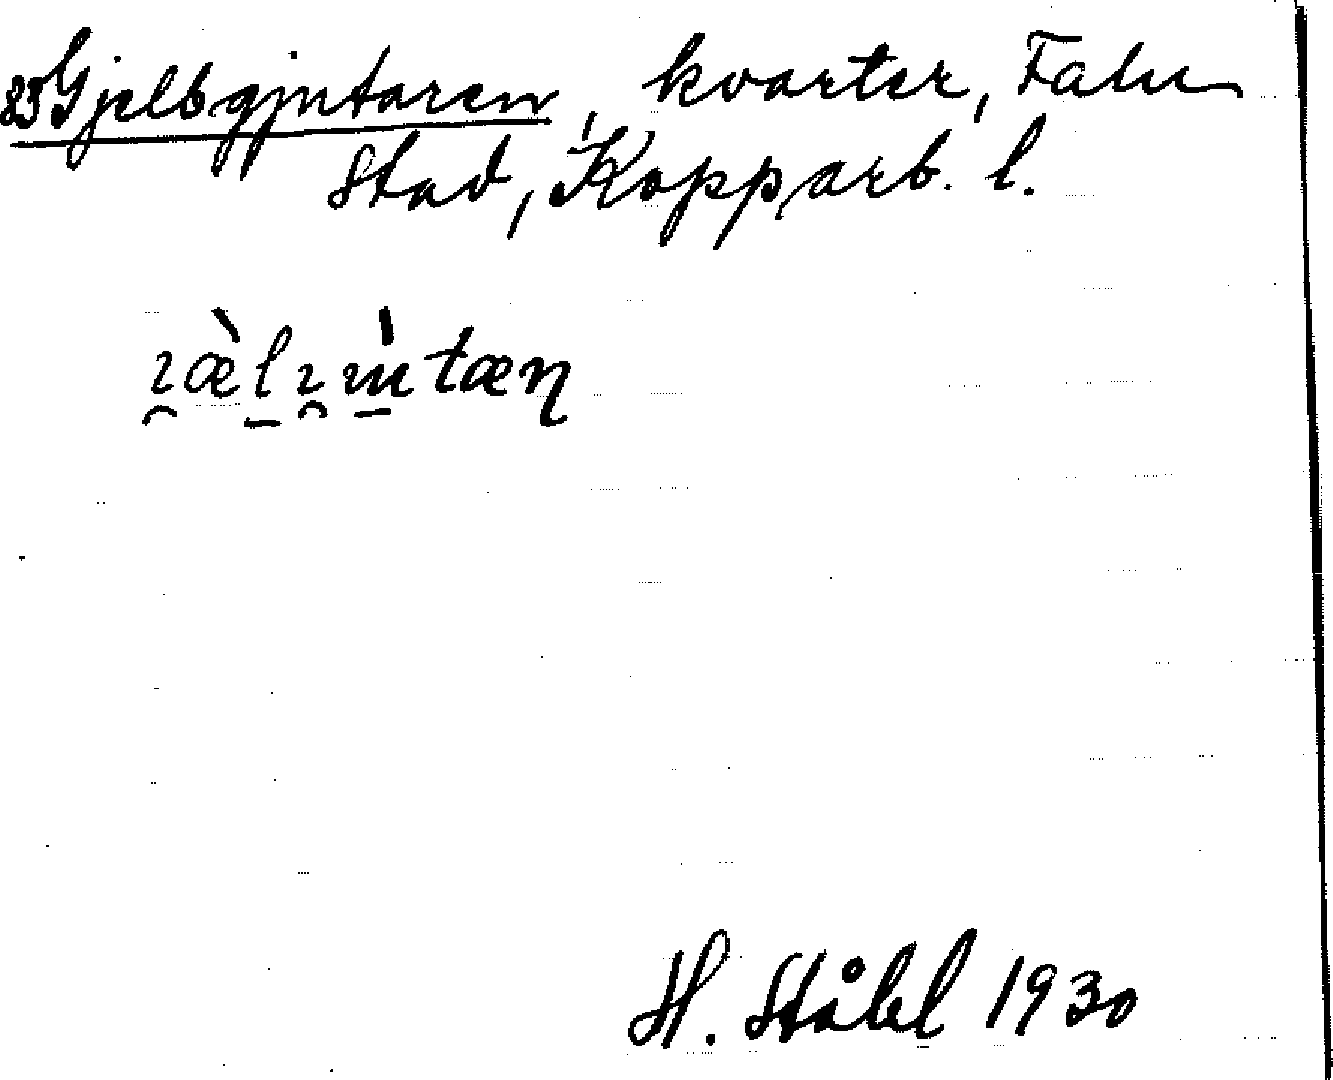 83 Gjelbgjutaren, kvarter, Falu
stad, Kopparb. l.
H. Ståhl 1930